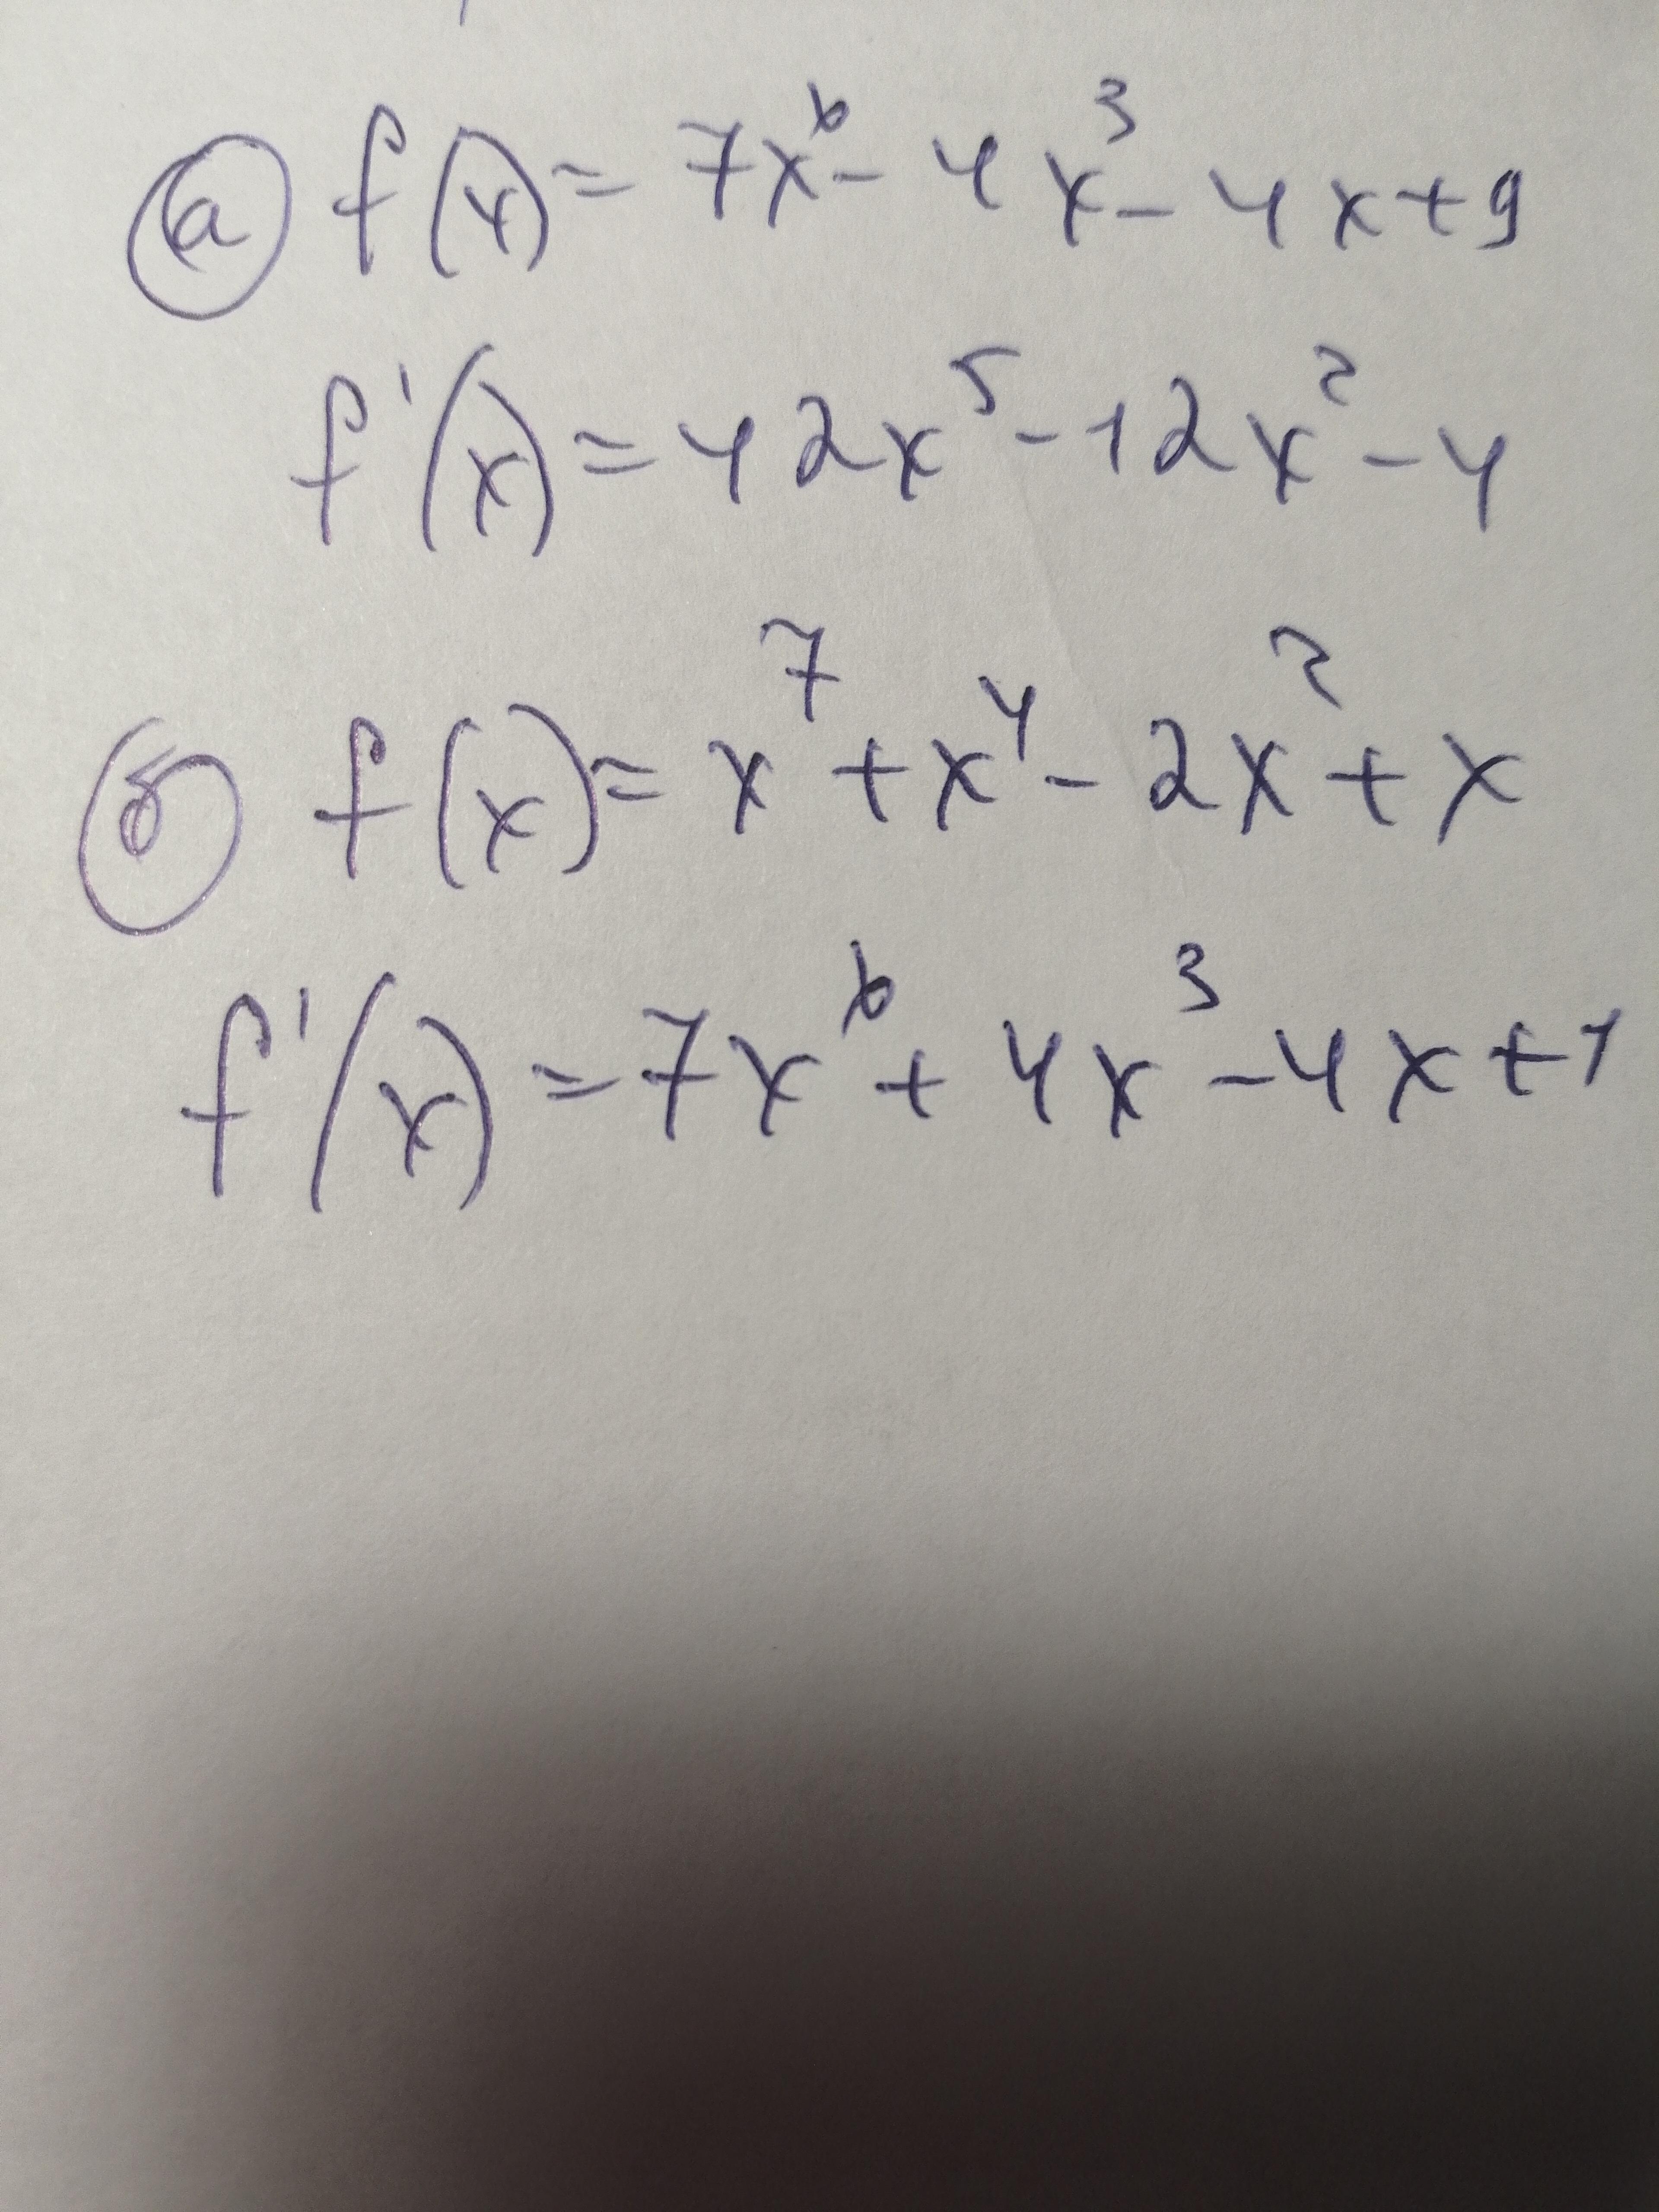 а) f(x) = 7x⁶ - 4x³ - 4x + 9
f'(x) = 42x⁵ - 12x² - 4
б) f(x) = x⁷ + x⁴ - 2x² + x
f'(x) = 7x⁶ + 4x³ - 4x + 1